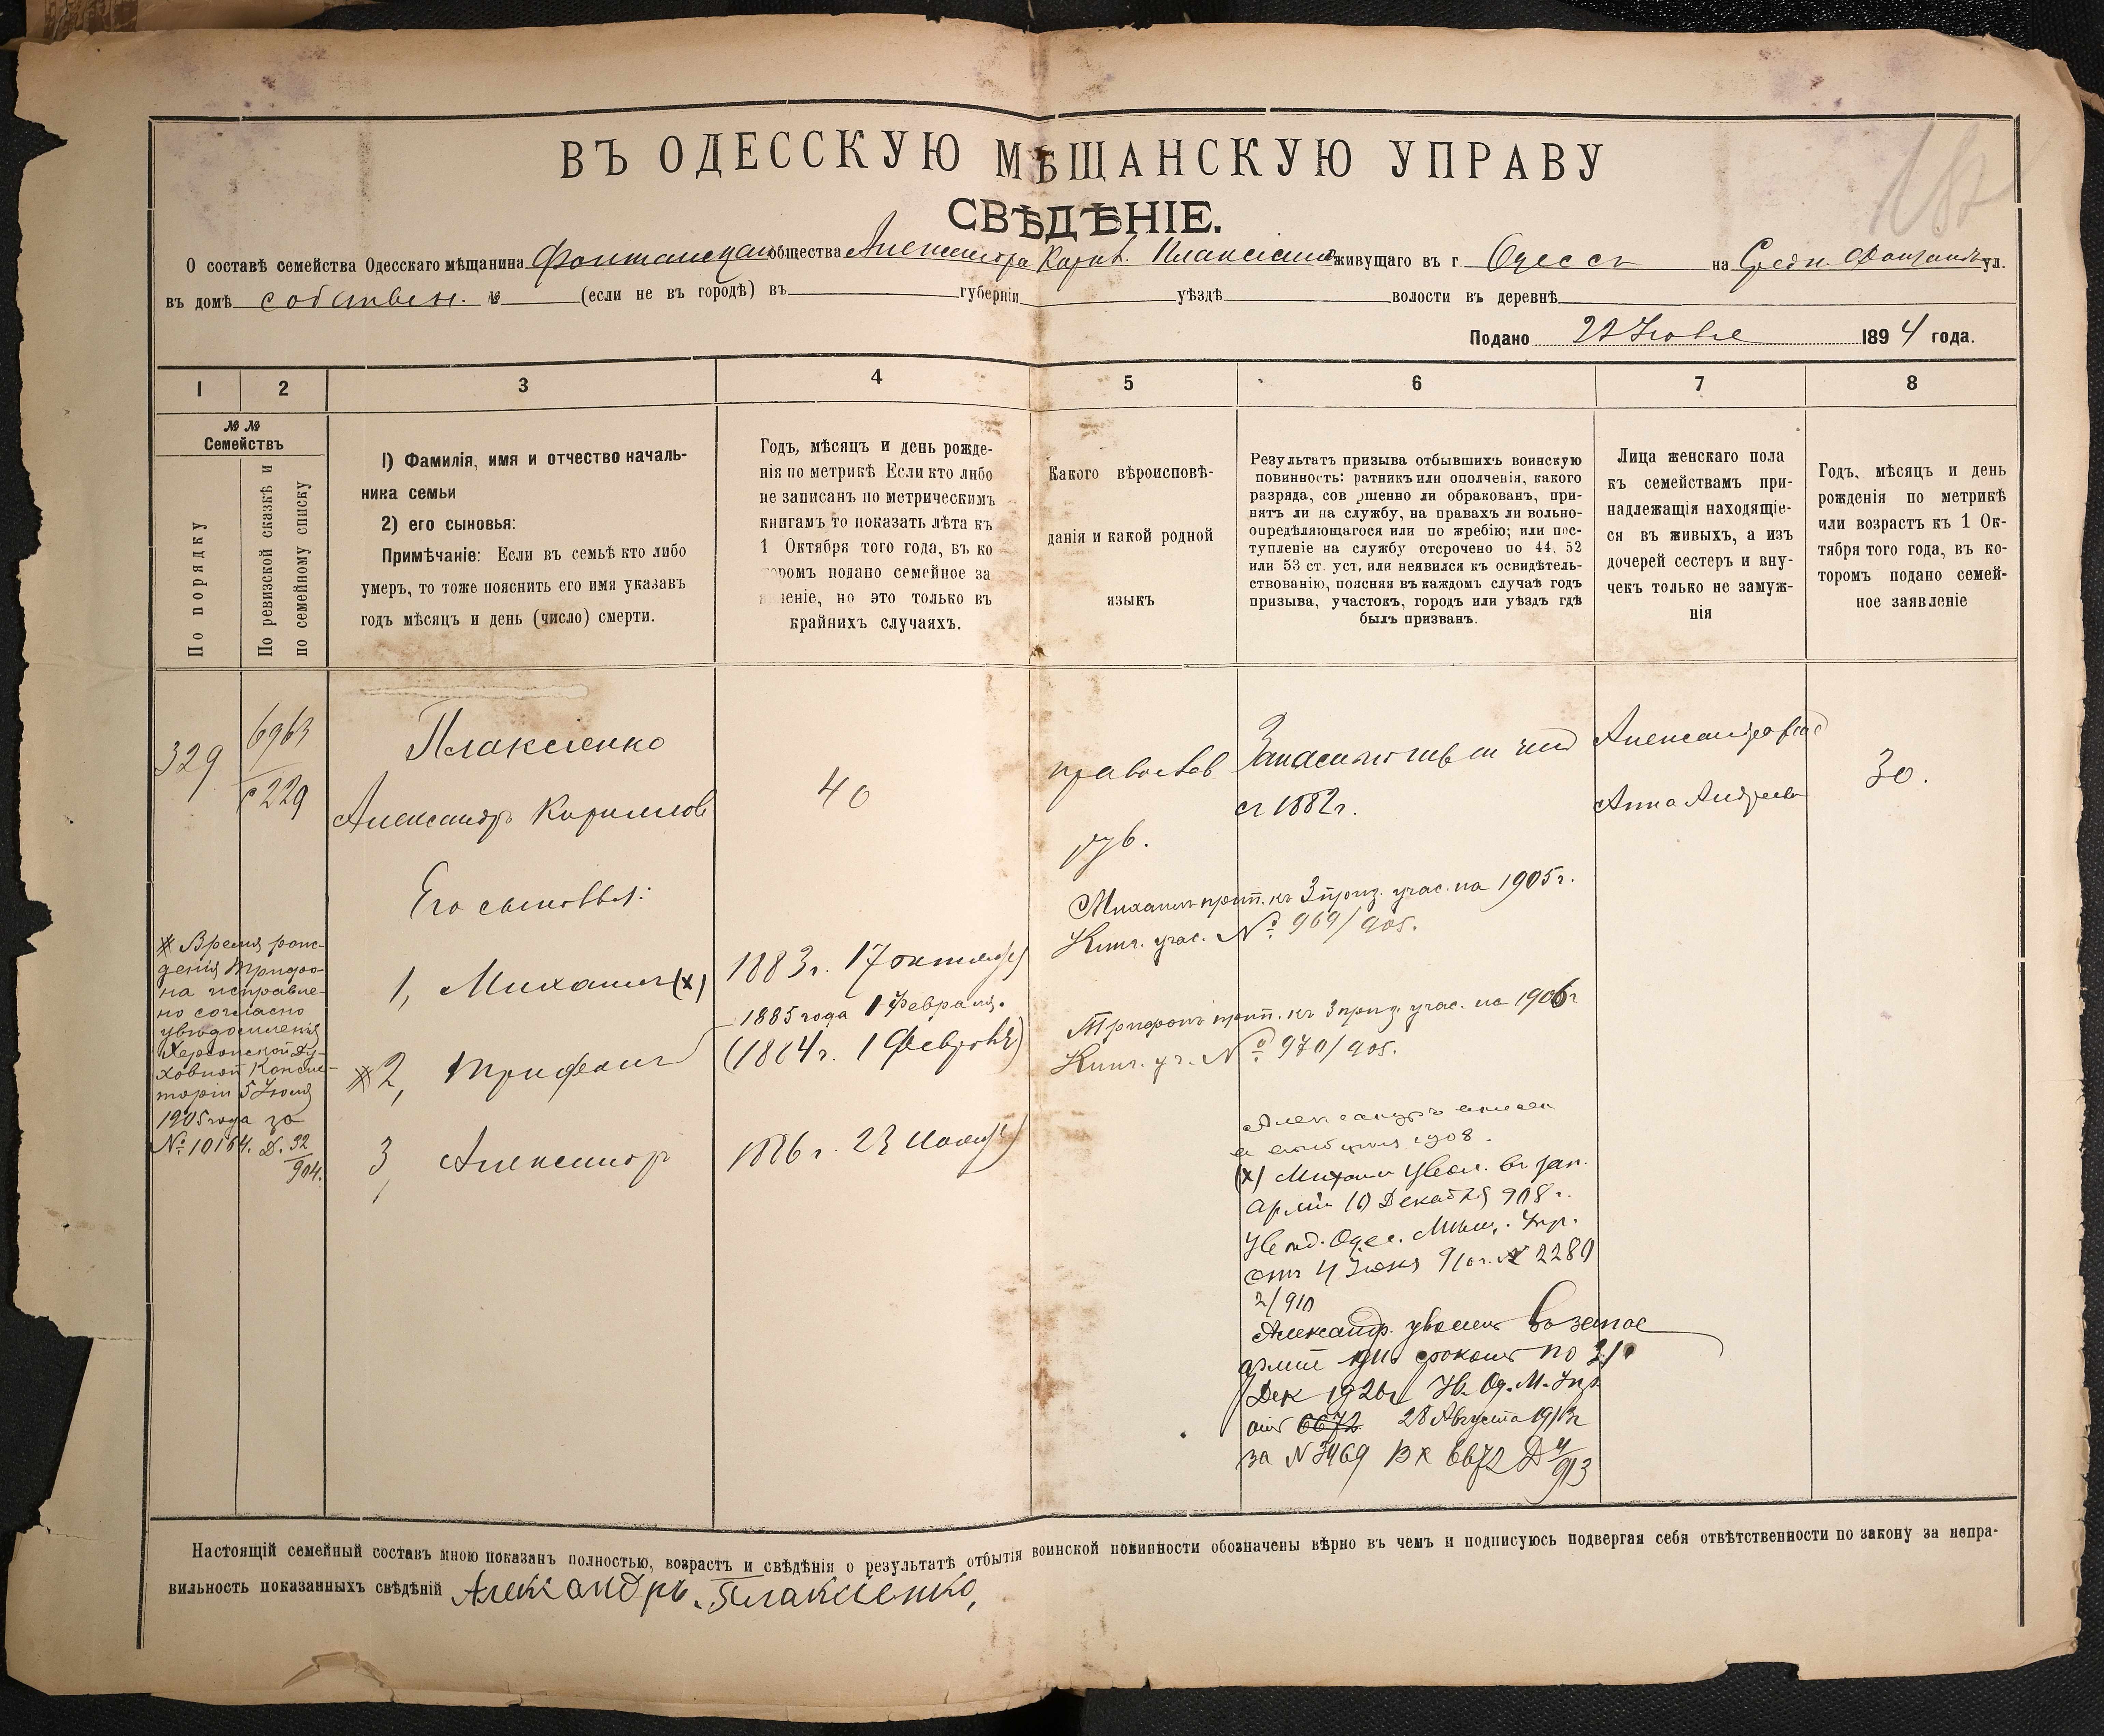 ВЪ ОДЕССКУЮ МѢЩАНСКУЮ УПРАВУ
СВѢДѢНІЕ.
О составѣ семейства Одесскаго мѣщанина общества живущаго въ г. Одесс на Средн. ул.
въ домѣ собствен. № (если не въ городѣ) въ губерніи уѣздѣ волости въ деревнѣ
Подано 1894 года.
1 2 3 4 5 6 7 8
№ №
Семействъ
По порядку
По ревизской сказкѣ и
по семейному списку
1) Фамилія, имя и отчество началь-
ника семьи
2) его сыновья:
Примѣчаніе: Если въ семьѣ кто либо
умеръ, то тоже пояснить его имя указавъ
годъ мѣсяцъ и день (число) смерти.
Годъ, мѣсяцъ и день рожде-
нія по метрикѣ Если кто либо
не записан по метрическимъ
книгамъ то показать лѣта къ
1 Октября того года, въ ко
томъ подано семейное за
леніе, но это только въ
крайнихъ случаяхъ.
Какого вѣроисповѣ-
данія и какой родной
языкъ
Результатъ призыва отбывшихъ воинскую
повинность: ратникъ или ополченія, какого
разряда, сов ршенно ли обракованъ, при-
нятъ ли на службу, на правахъ ли вольно-
опредѣляющагося или по жребію; или пос-
тупленіе на службу отсрочено по 44, 52
или 53 ст. уст. или неявился къ освидѣтель-
ствованію, поясняя въ каждомъ случаѣ годъ
призыва, участокъ, городъ или уѣздъ гдѣ
былъ призванъ.
Лица женскаго пола
къ семействамъ при-
надлежащія находящіе-
ся въ живыхъ, а изъ
дочерей сестеръ и вну-
чекъ только не замуж-
нія
Годъ, мѣсяцъ и день
рожденія по метрикѣ
или возрастъ къ 1 Ок-
тября того года, въ ко-
торомъ подано семей-
ное заявленіе
329
6963
с 229
Плаксіенко
Александръ Кириллов
40
православ
рус.
с 1882 г.
Анна Андреева
30.
Его сыновья:
1, Михаилъ (x)
1883 г. 17 октября
Михаилъ прип. къ 3 приз. учас. на 1905 г.
Книг. учас. № 969/905.
1885 года 1 Февраля.
* 2, Трифонъ
(1884 г. 1 Февраля)
Трифонъ прип. къ 3 приз. учас. на 1906 г
Книг. уч. № 970/905.
3, Александръ
1886 г. 23
* Время рож-
денія Трифо-
на исправле-
но согласно
увѣдомленія
Херсонской Ду-
ховной Консис-
торіи 5 Іюля
1905 года за
№ 10164. Д. 32/904.
Александръ
1908.
(x) Михаил увол. въ зап.
арміи 10 Декабря 908 г.
Увѣд. Одес. Мѣщ. Упр.
отъ 4 910 г. № 2280
2/910
Александръ уволенъ въ запас
арміи срокомъ по 31
Дек 1926 г Ув. Од. М. Упр
от 6672 28 Августа 1913 г
за № 3469 Вх 6672 Д 4/913
Настоящій семейный составъ мною показанъ полностью, возрастъ и свѣдѣнія о результатѣ отбытія воинской повинности обозначены вѣрно въ чемъ и подписуюсь подвергая себя отвѣтственности по закону за непра-
вильность показанныхъ свѣдѣній Александръ Плаксіенко,